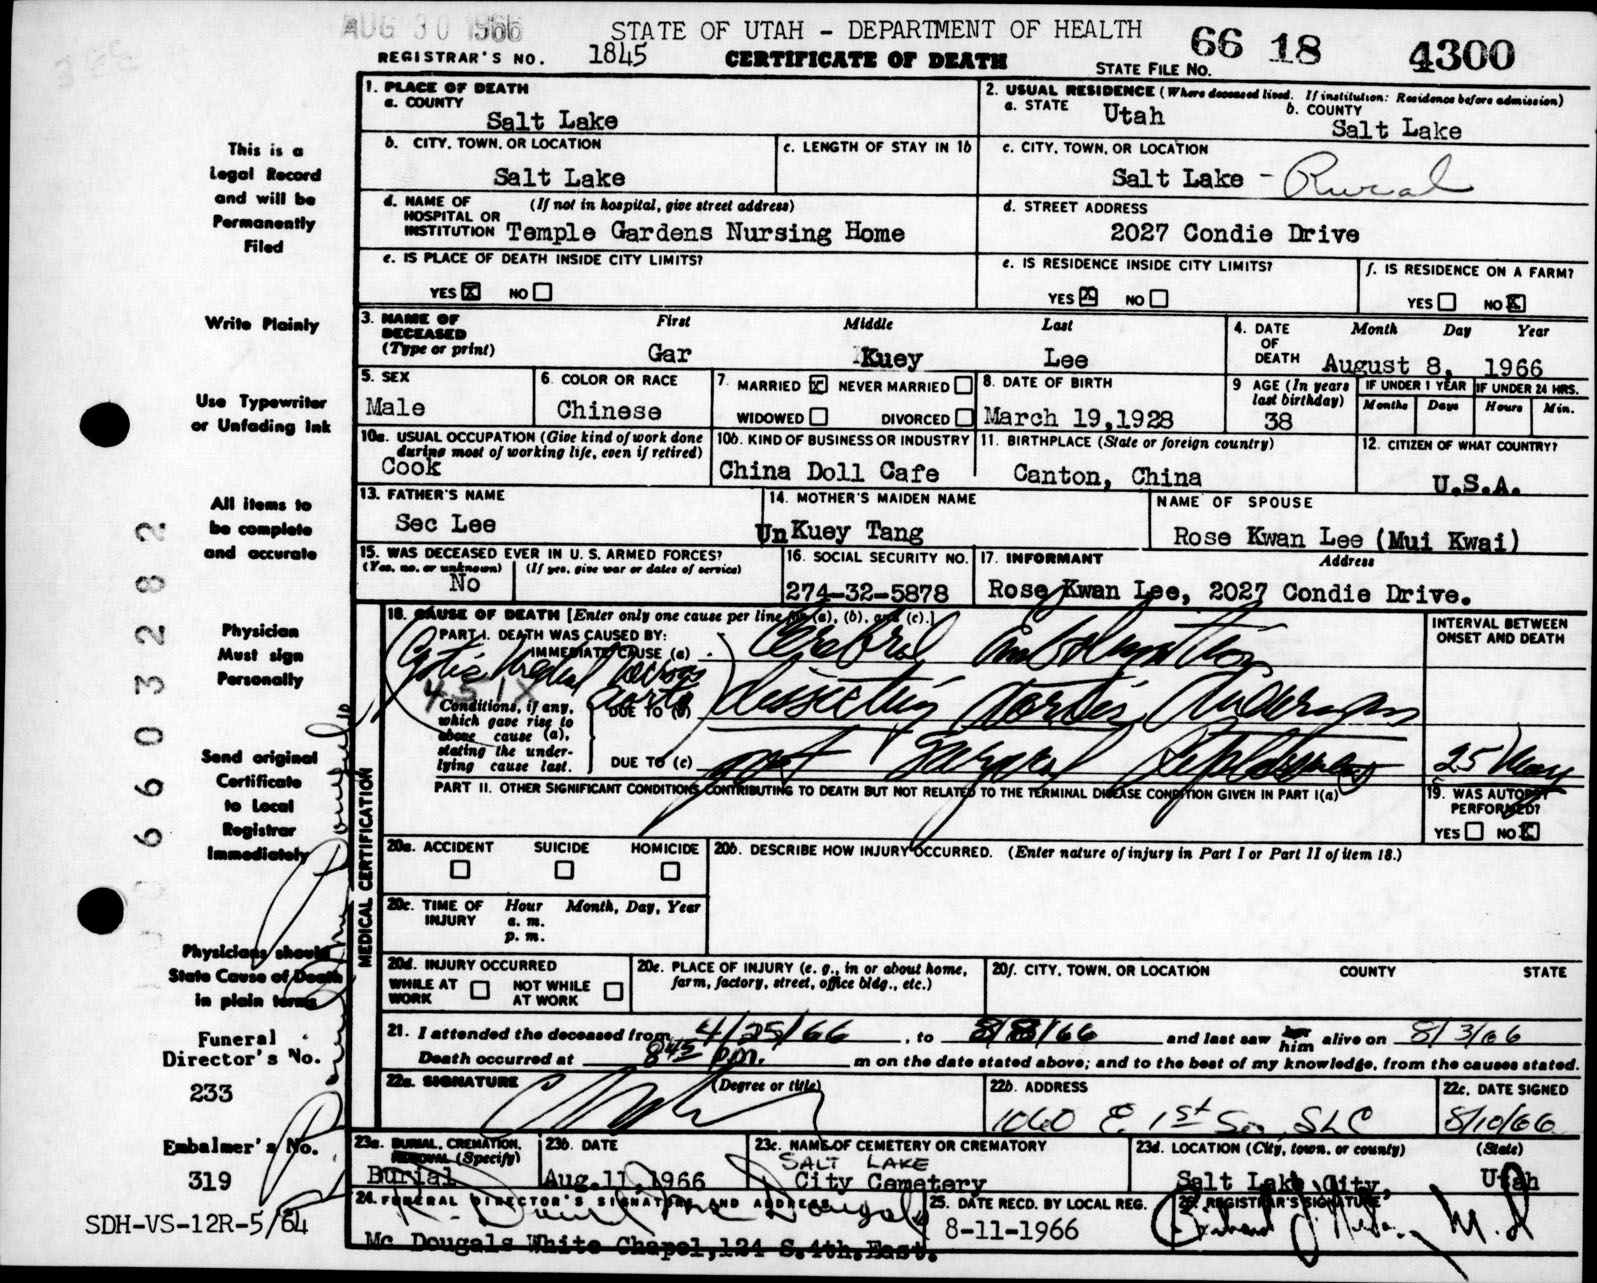 AUG 30 1966
STATE OF UTAH - DEPARTMENT OF HEALTH
REGISTRAR'S NO. 1845
CERTIFICATE OF DEATH
STATE FILE NO. 66 18 4300
This is a
Legal Record
and will be
Permanently
Filed
Write Plainly
Use Typewriter
or Unfading Ink
All items to
be complete
and accurate
Physician
Must sign
Personally
Send original
Certificate
to Local
Registrar
Immediately
Physicians should
State Cause of Death
in plain terms
Funeral
Director's No.
233
Embalmer's No.
319
SDH-VS-12R-5/64
6 6 0 3 2 8 2
1. PLACE OF DEATH
a. COUNTY
Salt Lake
2. USUAL RESIDENCE (Where deceased lived. If institution: Residence before admission)
a. STATE Utah
b. COUNTY
Salt Lake
b. CITY, TOWN, OR LOCATION
Salt Lake
c. LENGTH OF STAY IN 1b
c. CITY, TOWN, OR LOCATION
Salt Lake - Rural
d. NAME OF HOSPITAL OR INSTITUTION (If not in hospital, give street address)
Temple Gardens Nursing Home
d. STREET ADDRESS
2027 Condie Drive
e. IS PLACE OF DEATH INSIDE CITY LIMITS?
YES X NO
e. IS RESIDENCE INSIDE CITY LIMITS?
YES X NO
f. IS RESIDENCE ON A FARM?
YES NO X
3. NAME OF DECEASED
(Type or print)
First Middle Last
Gar Kuey Lee
4. DATE OF DEATH
Month Day Year
August 8, 1966
5. SEX
Male
6. COLOR OR RACE
Chinese
7. MARRIED X NEVER MARRIED
WIDOWED DIVORCED
8. DATE OF BIRTH
March 19,1928
9 AGE (In years last birthday)
38
IF UNDER 1 YEAR
Months Days
IF UNDER 24 HRS.
Hours Min.
10a. USUAL OCCUPATION (Give kind of work done during most of working life, even if retired)
Cook
10b. KIND OF BUSINESS OR INDUSTRY
China Doll Cafe
11. BIRTHPLACE (State or foreign country)
Canton, China
12. CITIZEN OF WHAT COUNTRY?
U.S.A.
13. FATHER'S NAME
Sec Lee
14. MOTHER'S MAIDEN NAME
Un Kuey Tang
NAME OF SPOUSE
Rose Kwan Lee (Mui Kwai)
15. WAS DECEASED EVER IN U. S. ARMED FORCES?
(Yes, no, or unknown) (If yes, give war or dates of service)
No
16. SOCIAL SECURITY NO.
274-32-5878
17. INFORMANT Address
Rose Kwan Lee, 2027 Condie Drive.
MEDICAL CERTIFICATION
18. CAUSE OF DEATH [Enter only one cause per line for (a), (b), and (c).]
PART I. DEATH WAS CAUSED BY:
IMMEDIATE CAUSE (a) Cerebral
451X aorta
Conditions, if any,
which gave rise to
above cause (a),
stating the under-
lying cause last.
DUE TO (b) dissecting aortic
DUE TO (c)
INTERVAL BETWEEN
ONSET AND DEATH
25
PART II. OTHER SIGNIFICANT CONDITIONS CONTRIBUTING TO DEATH BUT NOT RELATED TO THE TERMINAL DISEASE CONDITION GIVEN IN PART I(a)
19. WAS AUTOPSY
PERFORMED?
YES NO X
20a. ACCIDENT SUICIDE HOMICIDE
20b. DESCRIBE HOW INJURY OCCURRED. (Enter nature of injury in Part I or Part II of item 18.)
20c. TIME OF INJURY Hour Month, Day, Year
a. m.
p. m.
20d. INJURY OCCURRED
WHILE AT WORK NOT WHILE AT WORK
20e. PLACE OF INJURY (e. g., in or about home, farm, factory, street, office bldg., etc.)
20f. CITY, TOWN, OR LOCATION COUNTY STATE
21. I attended the deceased from 4/25/66, to 8/8/66 and last saw her him alive on 8/3/66
Death occurred at 8 45 P.m. m on the date stated above; and to the best of my knowledge, from the causes stated.
22a. SIGNATURE (Degree or title)
22b. ADDRESS
1060 E. 1st So. SLC
22c. DATE SIGNED
8/10/66
23a. BURIAL, CREMATION, REMOVAL (Specify)
Burial
23b. DATE
Aug.11,1966
23c. NAME OF CEMETERY OR CREMATORY
SALT LAKE
City Cemetery
23d. LOCATION (City, town, or county) (State)
Salt Lake City, Utah
24. FUNERAL DIRECTOR'S SIGNATURE AND ADDRESS
Mc Dougals White Chapel,124 S.4th.East.
25. DATE RECD. BY LOCAL REG.
8-11-1966
26. REGISTRAR'S SIGNATURE
M.D